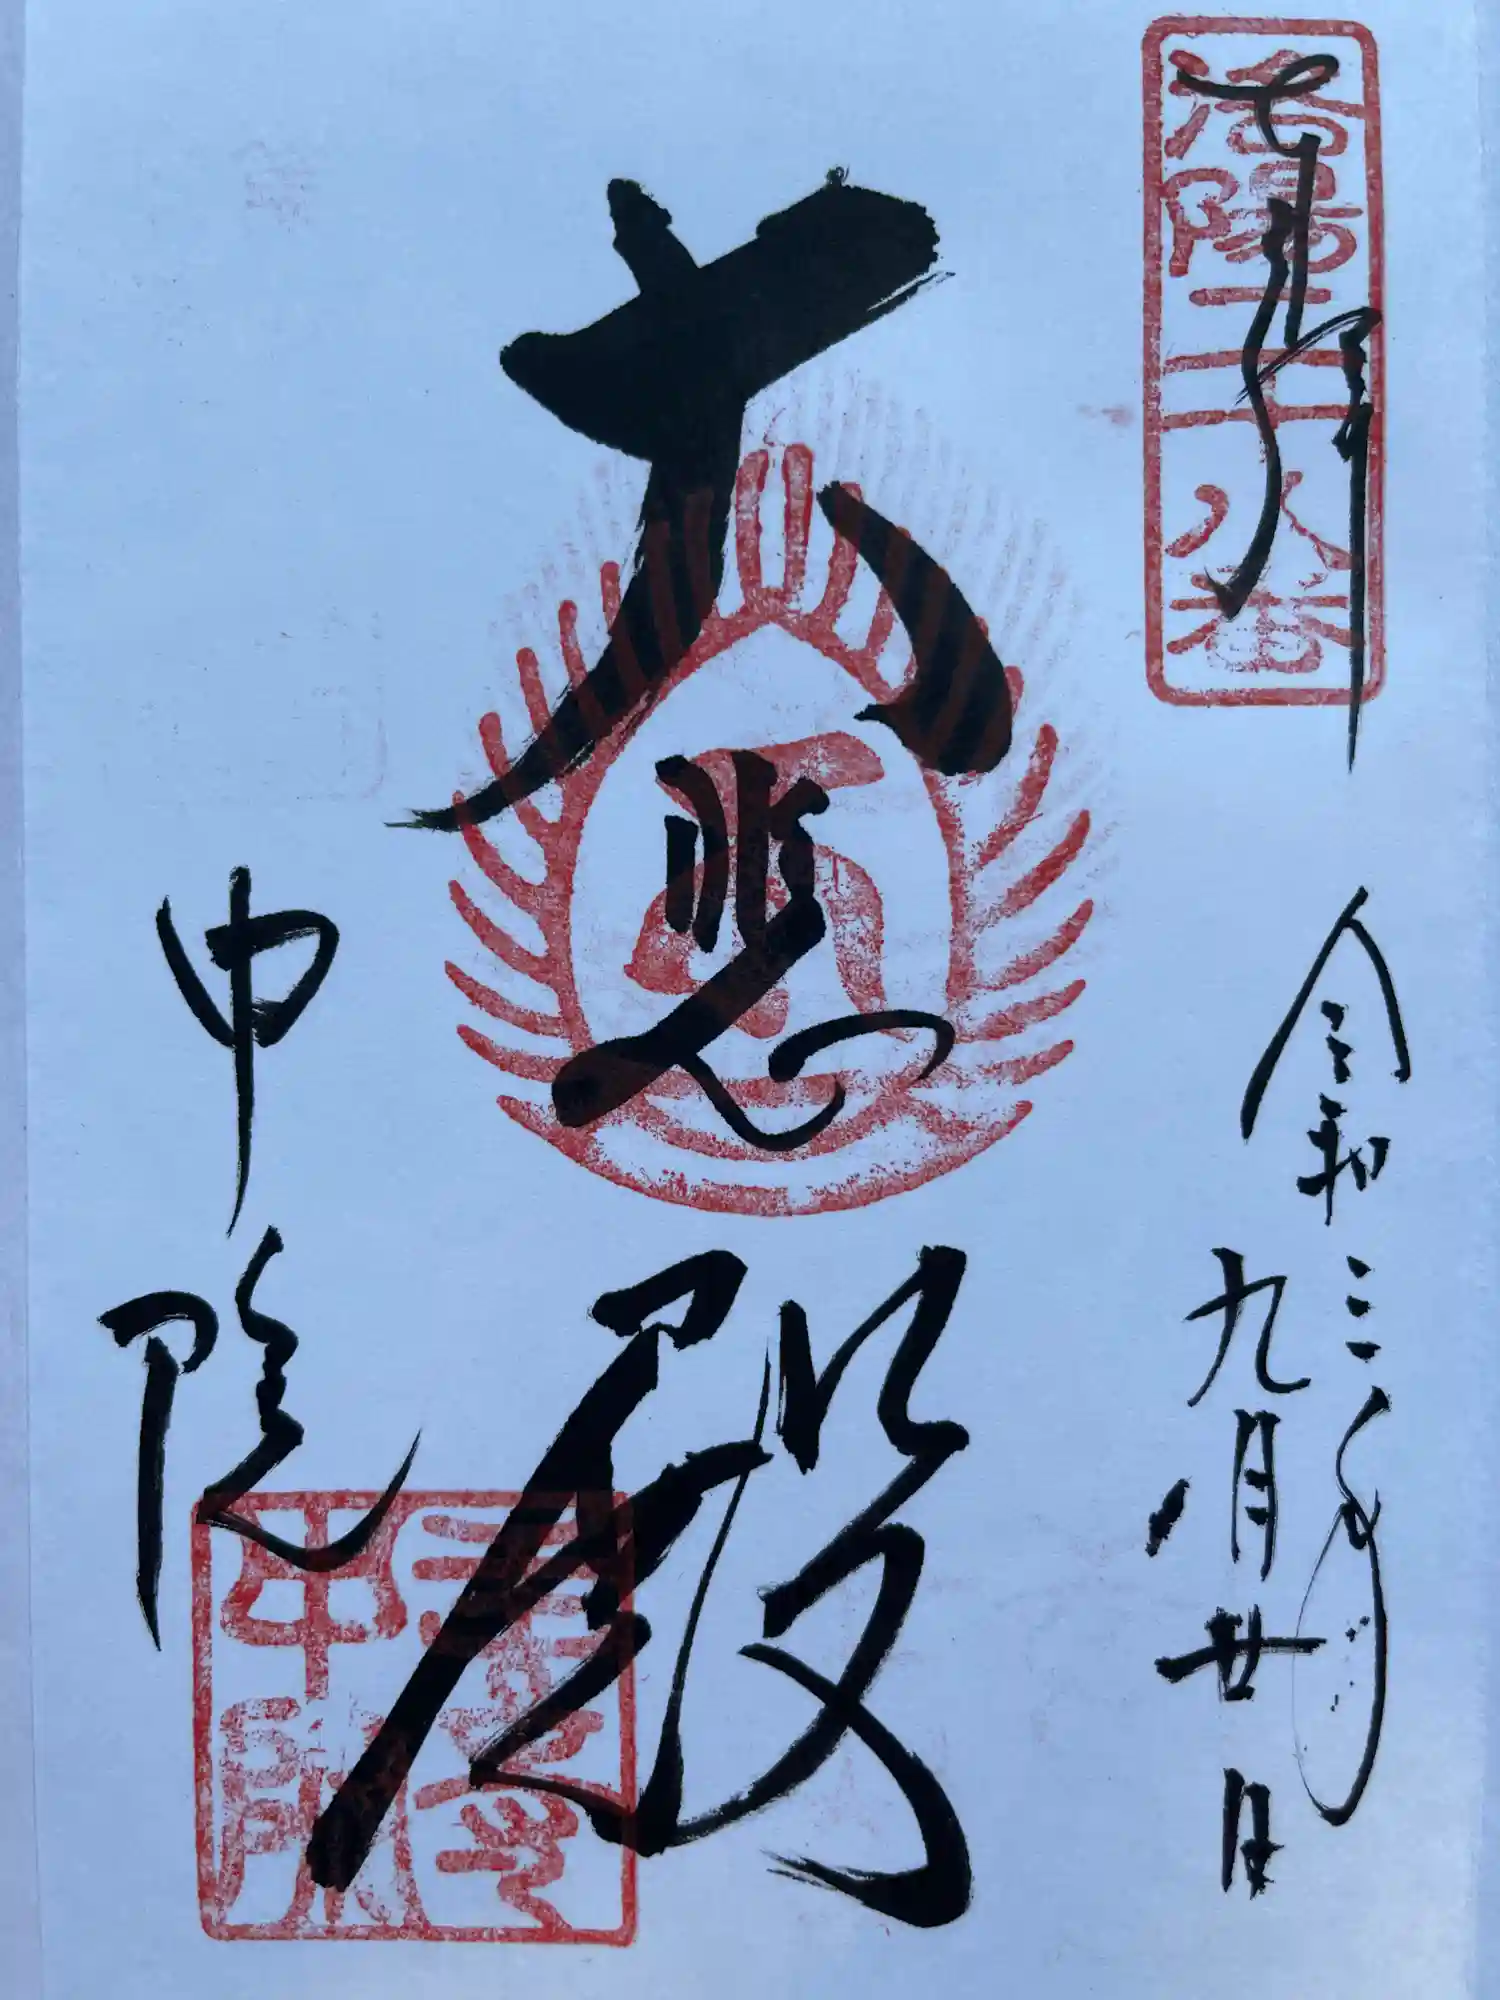 洛陽二十八番
奉拝
令和三年
九月廿日
大悲殿
中院